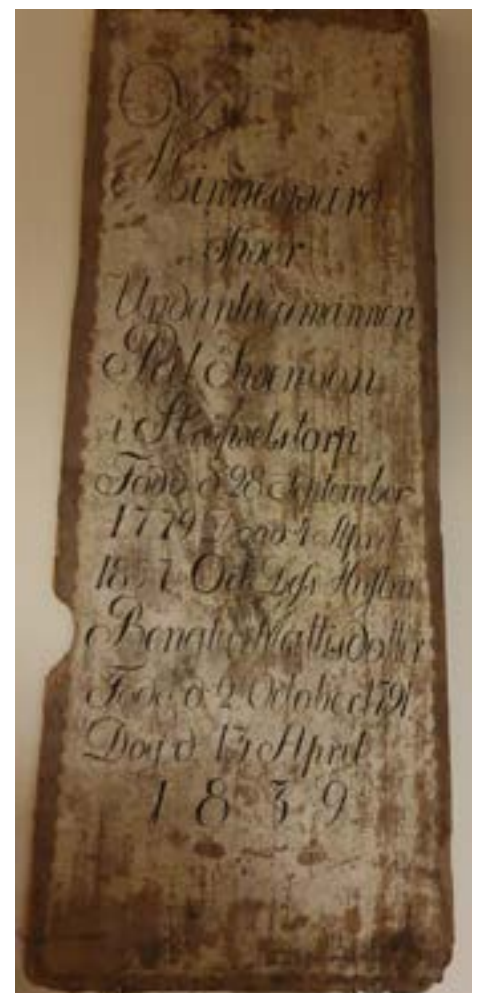 Minnesvård
öfver
Undantagsmannen
Pehl Svensson
i
Född d 28 September
1779 4 April
Och Dess Hustru
Bengta Mattisdotter
Född d 2 October 1791
Dog d 13 April
1839